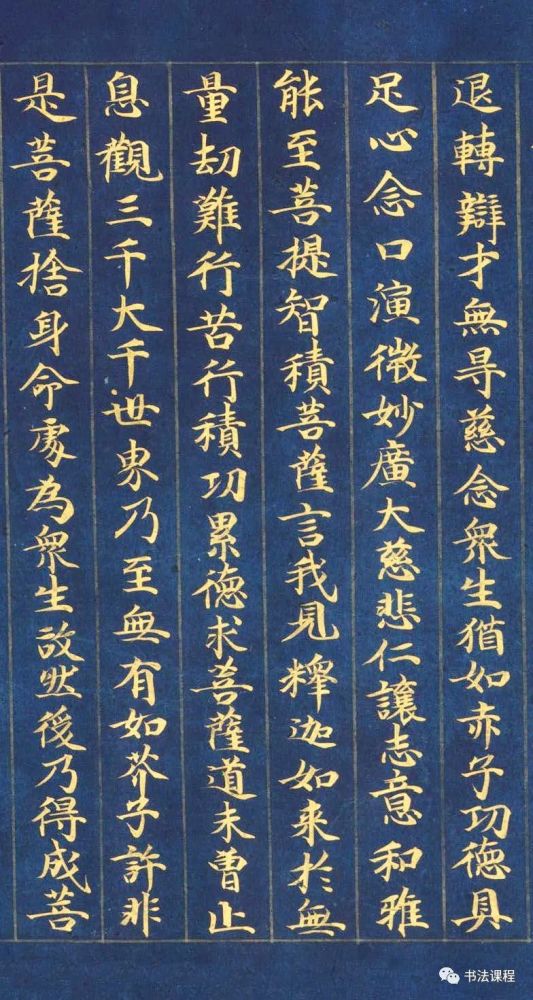 退轉辯才無㝵慈念衆生猶如赤子功德具
足心念口演微妙廣大慈悲仁讓志意和雅
能至菩提智積菩薩言我見釋迦如来於無
量劫難行苦行積功累德求菩薩道未曾止
息觀三千大千世界乃至無有如芥子許非
是菩薩捨身命處為衆生故然後乃得成菩
书法课程